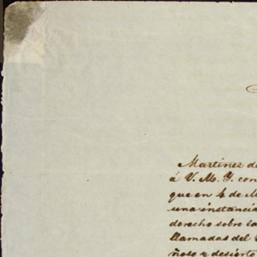 Martinez de
á V. M. Y. con
que en 4 de M
una instancia
derecho sobre la
llamadas del
ñoso y desierto